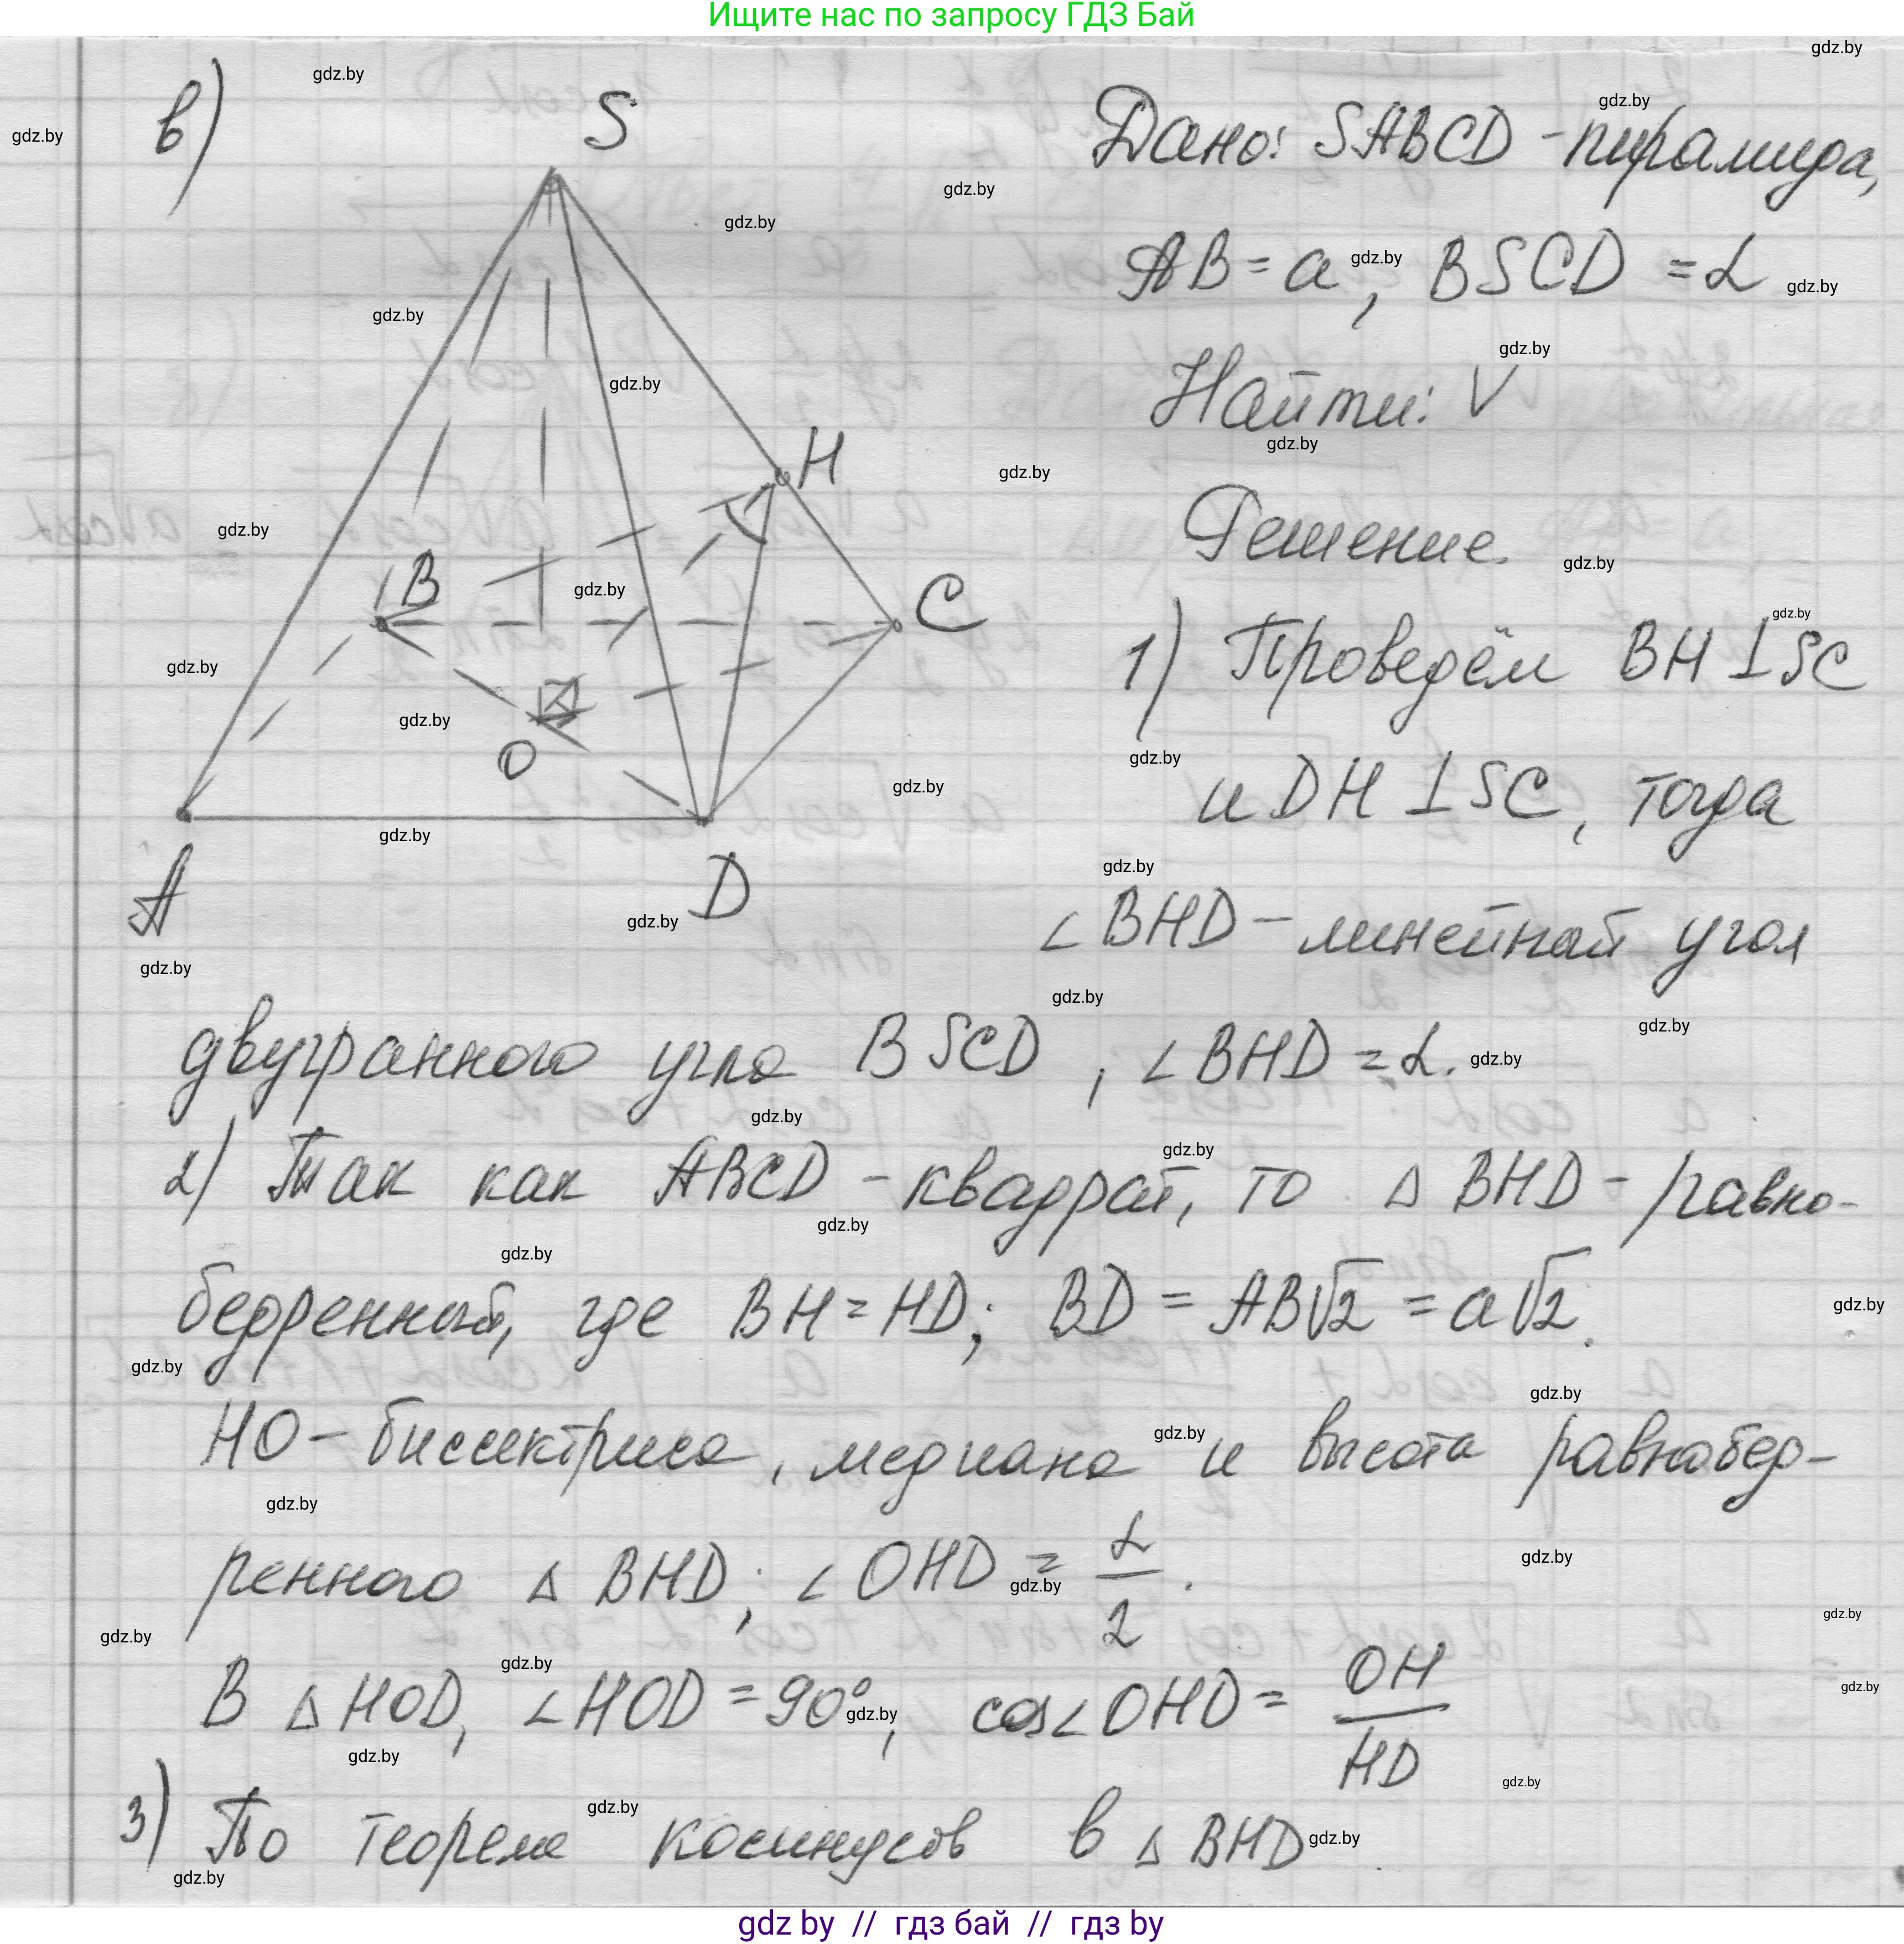 Ищите нас по запросу ГДЗ Бай
в)
S
H
B
C
O
A
D
Дано: SABCD - пирамида,
AB = a, BSCD = α
Найти: V
Решение.
1) Проведём BH ⊥ SC
и DH ⊥ SC, тогда
∠BHD - линейный угол
двугранного угла BSCD, ∠BHD = α.
2) Так как ABCD - квадрат, то △ BHD - равно-
бедренный, где BH = HD; BD = AB√2 = a√2.
HO - биссектриса, медиана и высота равнобед-
ренного △ BHD; ∠OHD = α/2.
В △ HOD, ∠HOD = 90°, cos∠OHD = OH/HD
3) По теореме косинусов в △ BHD
gdz by // гдз бай // гдз by